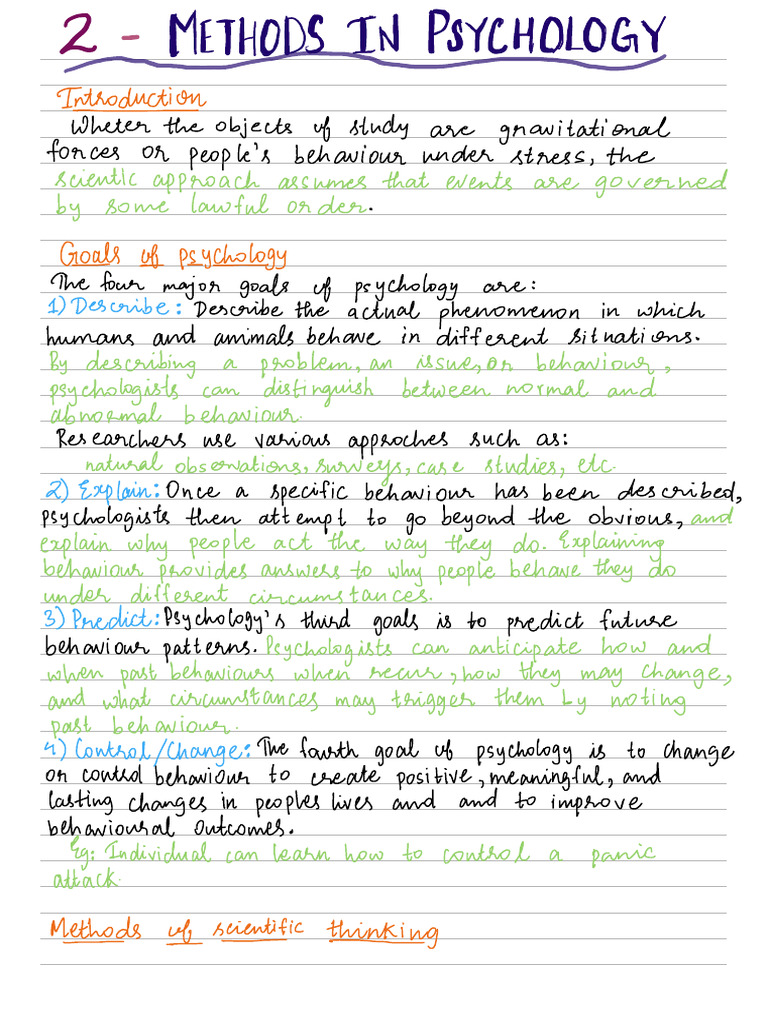 2 - METHODS IN PSYCHOLOGY
Introduction
Wheter the objects of study are gravitational
forces or people's behaviour under stress, the
scientic approach assumes that events are governed
by some lawful order.
Goals of psychology
The four major goals of psychology are:
1) Describe: Describe the actual phenomenon in which
humans and animals behave in different situations.
By describing a problem, an issue, or behaviour,
psychologists can distinguish between normal and
abnormal behaviour.
Researchers use various approches such as:
natural observations, surveys, case studies, etc.
2) Explain: Once a specific behaviour has been described,
psychologists then attempt to go beyond the obvious, and
explain why people act the way they do. Explaining
behaviour provides answers to why people behave they do
under different circumstances.
3) Predict: Psychology's third goals is to predict future
behaviour patterns. Psychologists can anticipate how and
when past behaviours when recur, how they may change,
and what circumstances may trigger them by noting
past behaviour.
4) Control/Change: The fourth goal of psychology is to change
or control behaviour to create positive, meaningful, and
lasting changes in peoples lives and and to improve
behavioural outcomes.
Eg: Individual can learn how to control a panic
attack.
Methods of scientific thinking